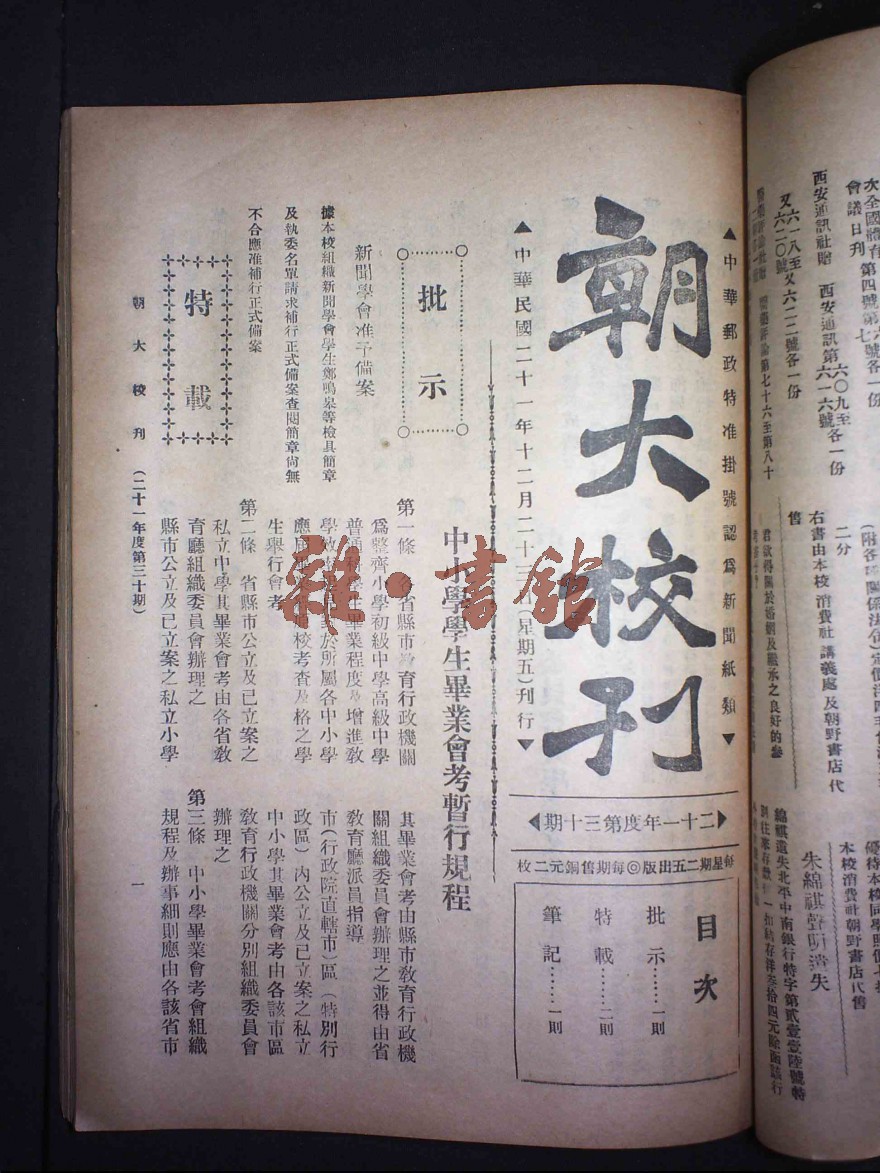 次全國體育
會議日刊 第四號第六號各一份
西安通訊社贈 西安通訊第六一六號
又六一八至又六二二號各一份
售
右書由本校消費社講義處及朝野書店代
二分
本校消費社朝野書店代售
朱綿祺聲明遺失
綿祺遺失北平中南銀行特字第貳壹壹陸號特
▲中華郵政特准掛號認爲新聞紙類▼
朝大校刊
▲中華民國二十一年十二月二十三日(星期五)刊行▼
◀二十一年度第三十期▶
每星期二五出版◎每期售銅元二枚
目次
批示……一則
特載……二則
筆記……一則
批示
新聞學會准予備案
據本校組織新聞學會學生鄭鳴泉等檢具簡章
及執委名單請求補行正式備案查閱簡章尚無
不合應准補行正式備案
特載
中小學學生畢業會考暫行規程
第一條 各省縣市教育行政機關
爲整齊小學初級中學高級中學
普通科學生畢業程度及增進教
學效率起見對於所屬各中小學
應屆畢業經原校考查及格之學
生舉行會考
第二條 省縣市公立及已立案之
私立中學其畢業會考由各省教
育廳組織委員會辦理之
縣市公立及已立案之私立小學
其畢業會考由縣市教育行政機
關組織委員會辦理之並得由省
教育廳派員指導
市(行政院直轄市)區(特別行
政區)內公立及已立案之私立
中小學其畢業會考由各該市區
教育行政機關分別組織委員會
辦理之
第三條 中小學畢業會考會組織
規程及辦事細則應由各該省市
朝大校刊 (二十一年度第三十期) 一
雜·書館